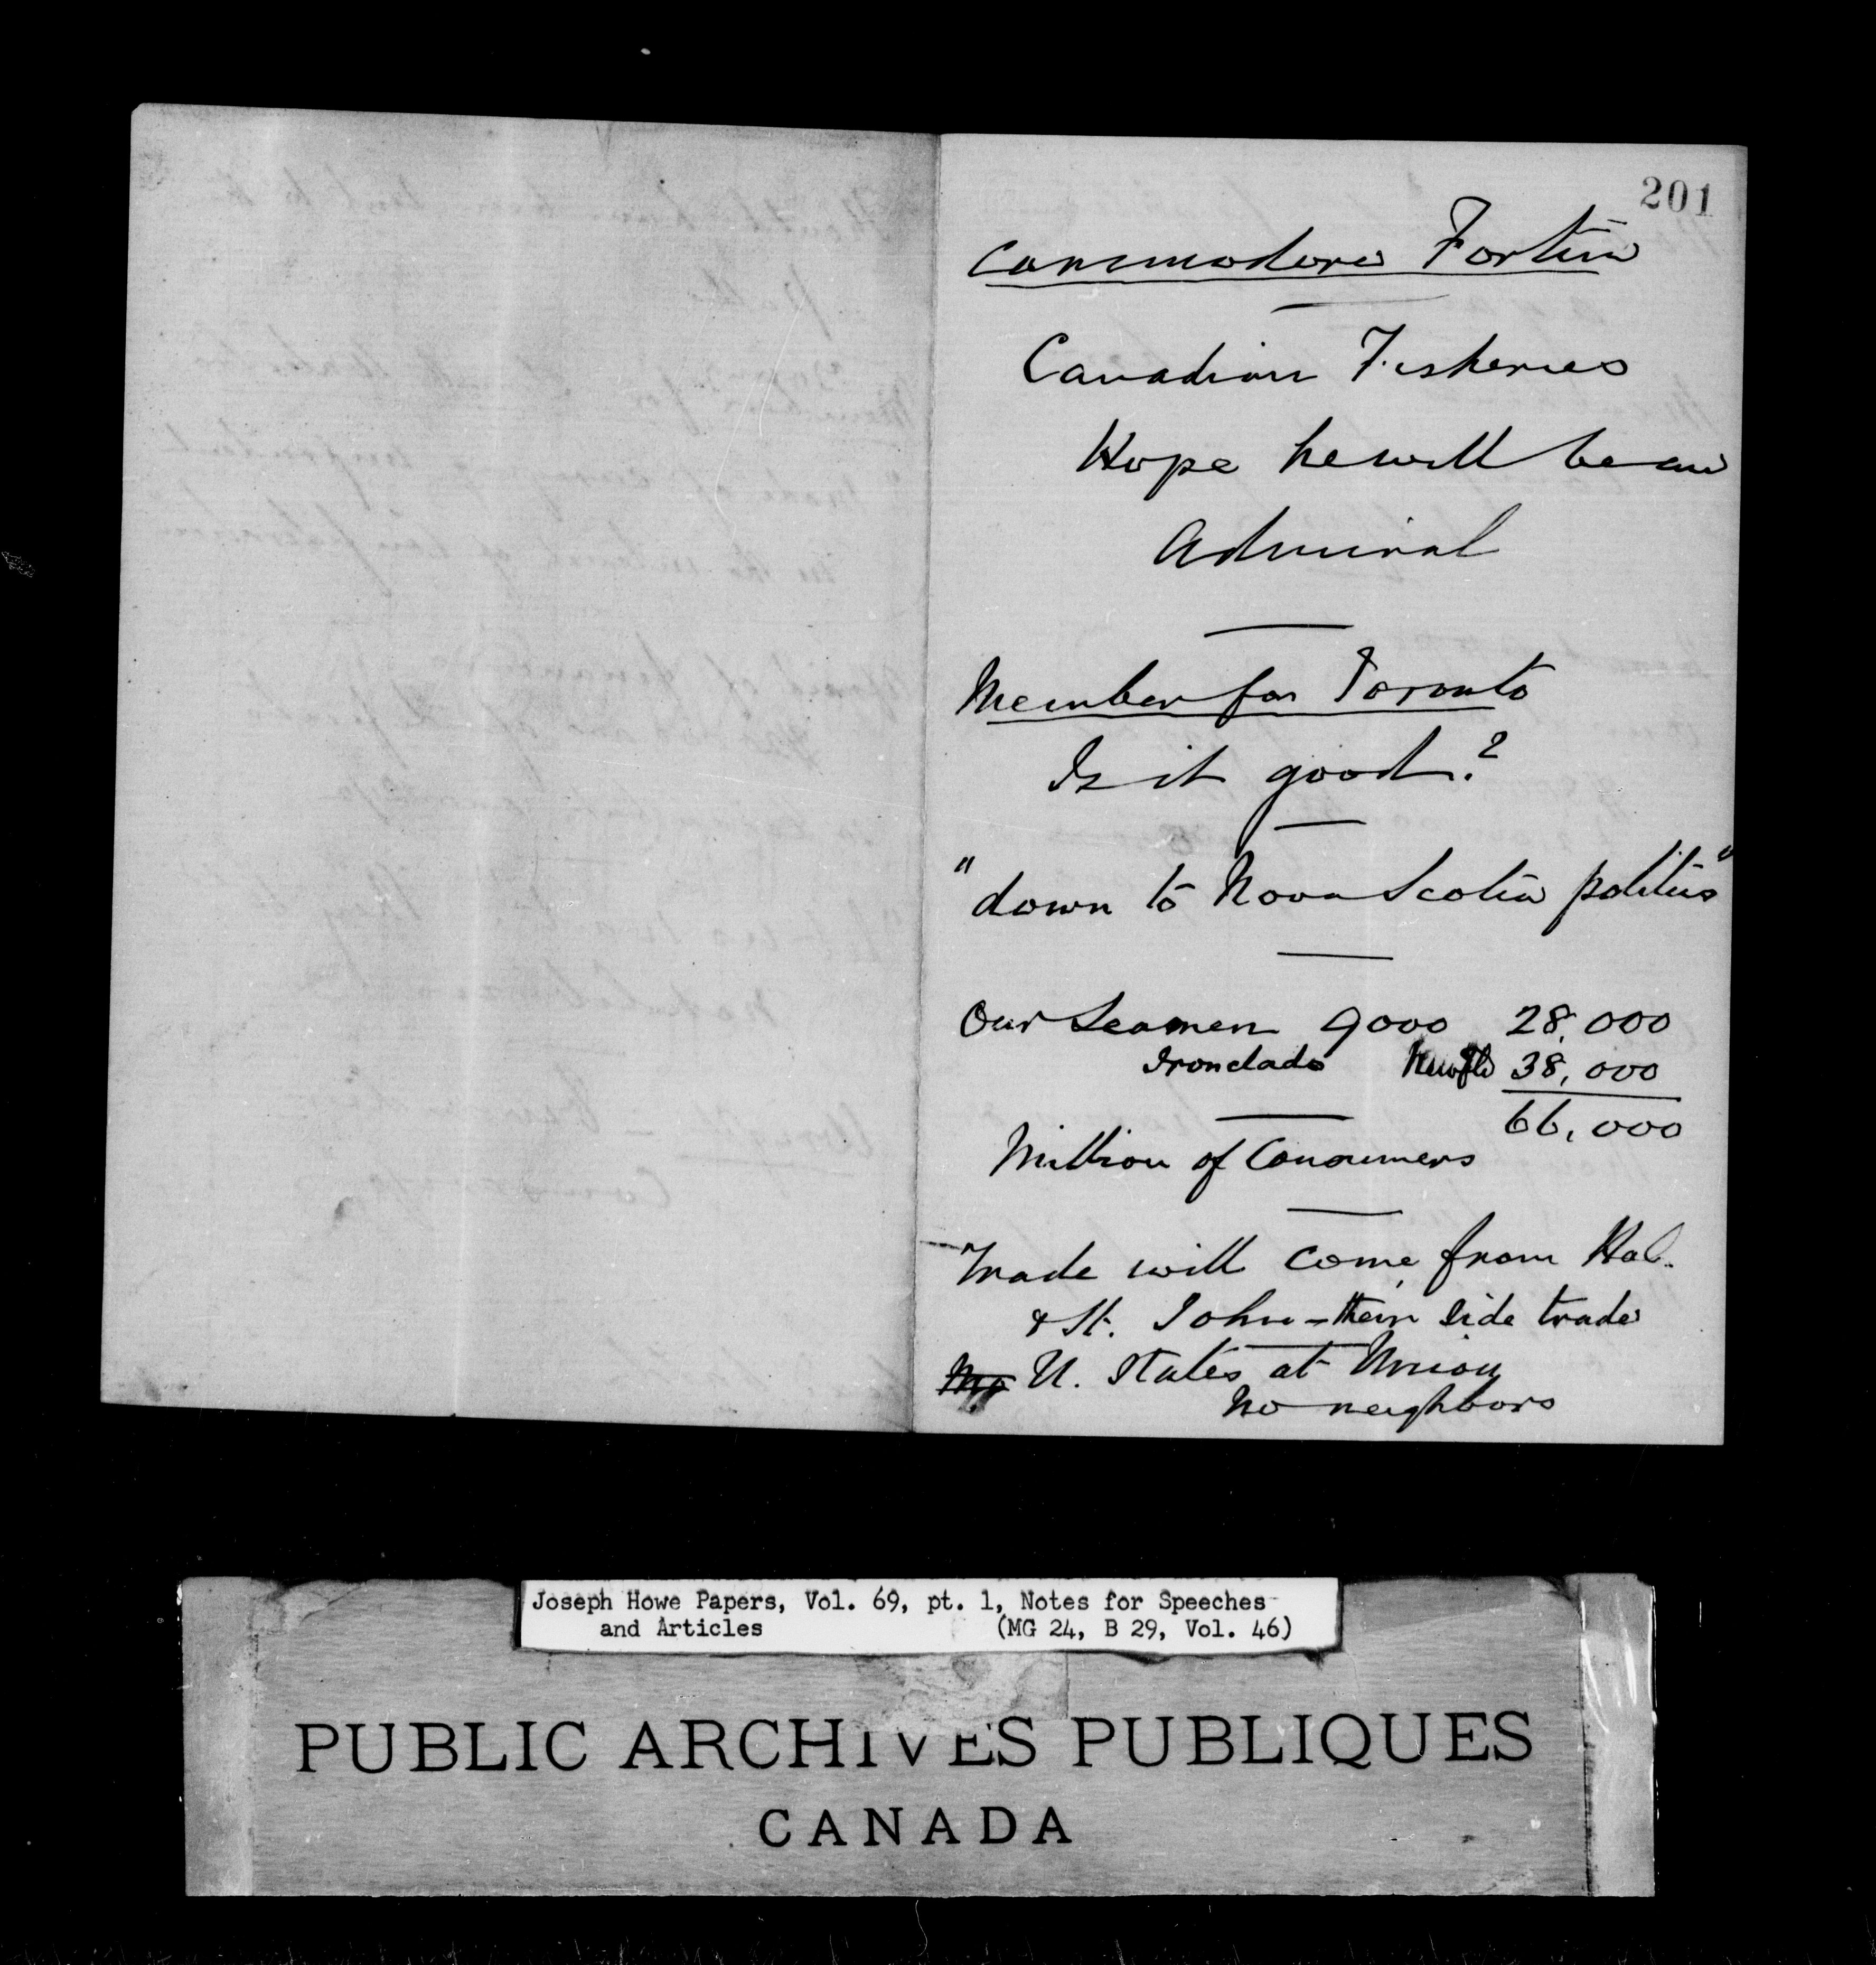 201
Commodore Fortin
Canadian Fisheries
Hope he will be an
Admiral
Member for Toronto
Is it good?
"down to Nova Scotia politics"
Our Seamen 9000 28,000
Ironclads Newfld 38,000
66,000
Million of Consumers
Trade will come from Hal.
& St. John - their side trade
U. States at Union
No neighbors
Joseph Howe Papers, Vol. 69, pt. 1, Notes for Speeches
and Articles (MG 24, B 29, Vol. 46)
PUBLIC ARCHIVES PUBLIQUES
CANADA